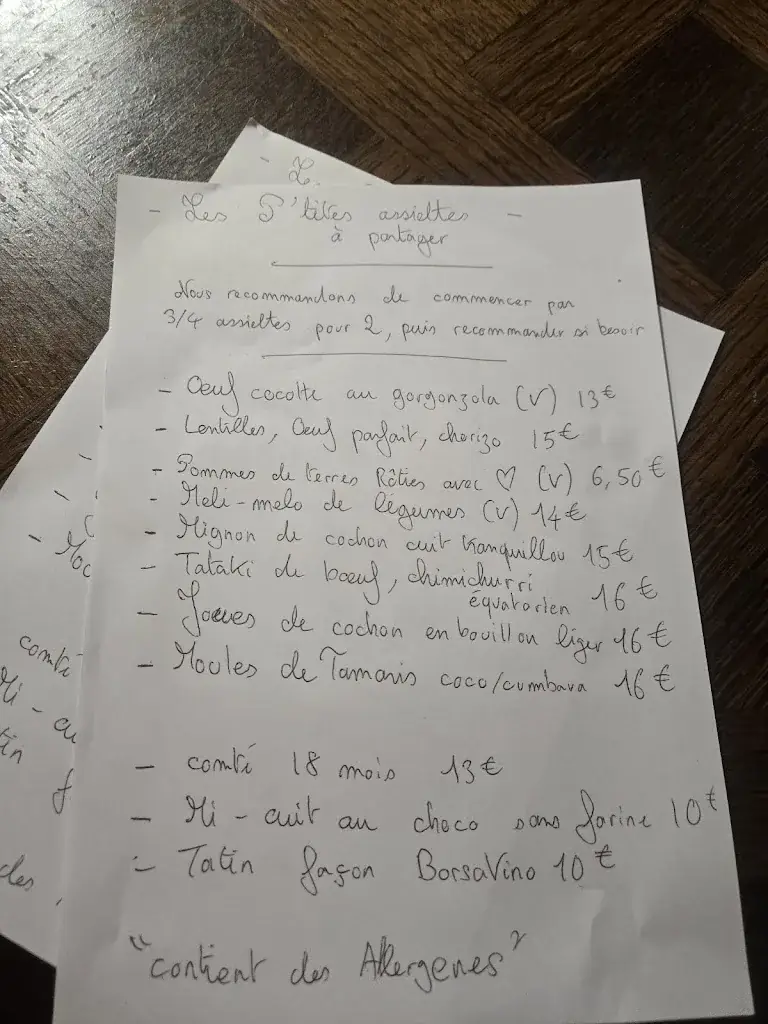 - Les P'tites assiettes -
à partager
Nous recommandons de commencer par
3/4 assiettes pour 2, puis recommander si besoin
- Oeuf cocotte au gorgonzola (V) 13€
- Lentilles, Oeuf parfait, chorizo 15€
- Pommes de terres Rôties avec ♡ (V) 6,50€
- Meli-melo de légumes (V) 14€
- Mignon de cochon cuit tranquillou 15€
- Tataki de bœuf, chimichurri
équatorien 16€
- Joues de cochon en bouillon léger 16€
- Moules de Tamaris coco/cumbava 16€
- comté 18 mois 13€
- Mi-cuit au choco sans farine 10€
- Tatin façon BorsaVino 10€
"contient des Allergenes"
comté